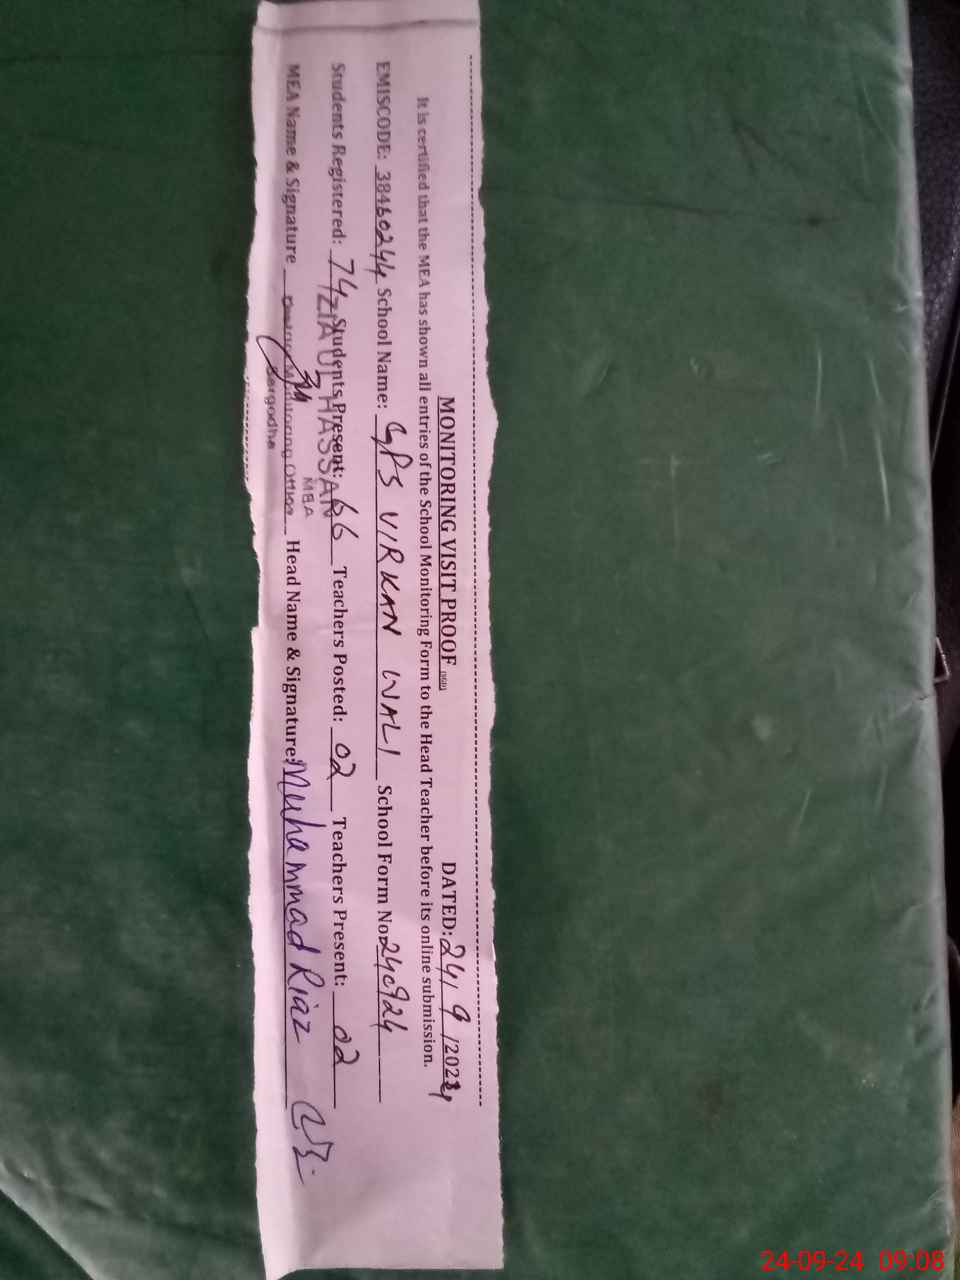 MONITORING VISIT PROOF DATED: 24/9/2024
It is certified that the MEA has shown all entries of the School Monitoring Form to the Head Teacher before its online submission.
EMISCODE: 38460244 School Name: GPS VIRKAN WALI School Form No 240924
Students Registered: 74 Students Present: 66 Teachers Posted: 02 Teachers Present: 02
ZIA UL HASSAN
MEA
MEA Name & Signature Head Name & Signature: Muhammad Riaz
Monitoring Office
Sargodha
24-09-24 09:08